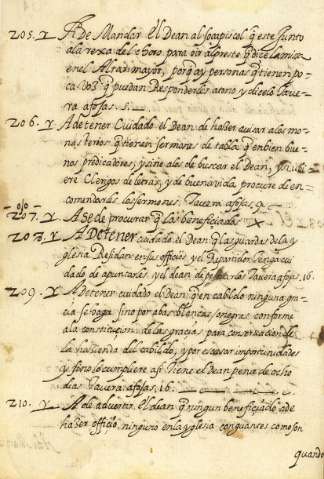 205. Y A De Mandar El Dean al sochapiscol q este junto
a la rexa del choro para oir al preste q dice la missa
en el Altar mayor, porq ay personas q tienen po-
ca voz q puedan Responderles a tono y dicelo Tave-
ra afojas. 5.
206. Y A de tener Cuidado el Dean de hazer avisar a los mo-
nasterios q tienen sermones de tabla q enbien bue-
nos predicadores, y si ne ales de buscar el Dean, y si hu-
ere Clerigos de letras y de buena vida procure de en-
comendarles los sermones. Tavera afojas 9.
207. Y A se de procurar q las beneficiadas
208. Y A De tener cuidado el Dean q las guardas de la y-
glesia Residan en su officio, y el Repartidor tenga cui-
dado de apuntarles, y el dean de Tavera afojas. 16.
209. Y A de tener cuidado el Dean q en cabildo ninguna gra-
cia se haga sino por abas blancas y negras conforme
a la constitucion de las gracias para conservacion de
la hacienda del cabildo, y por escusar importunidades
y si no lo cumpliere asi tiene el Dean pena de ocho
dias Tavera afojas. 16.
210. Y A de advertir. El dean q ningun beneficiado a de
hazer officio ninguno en la yglesia con guantes como son
quando